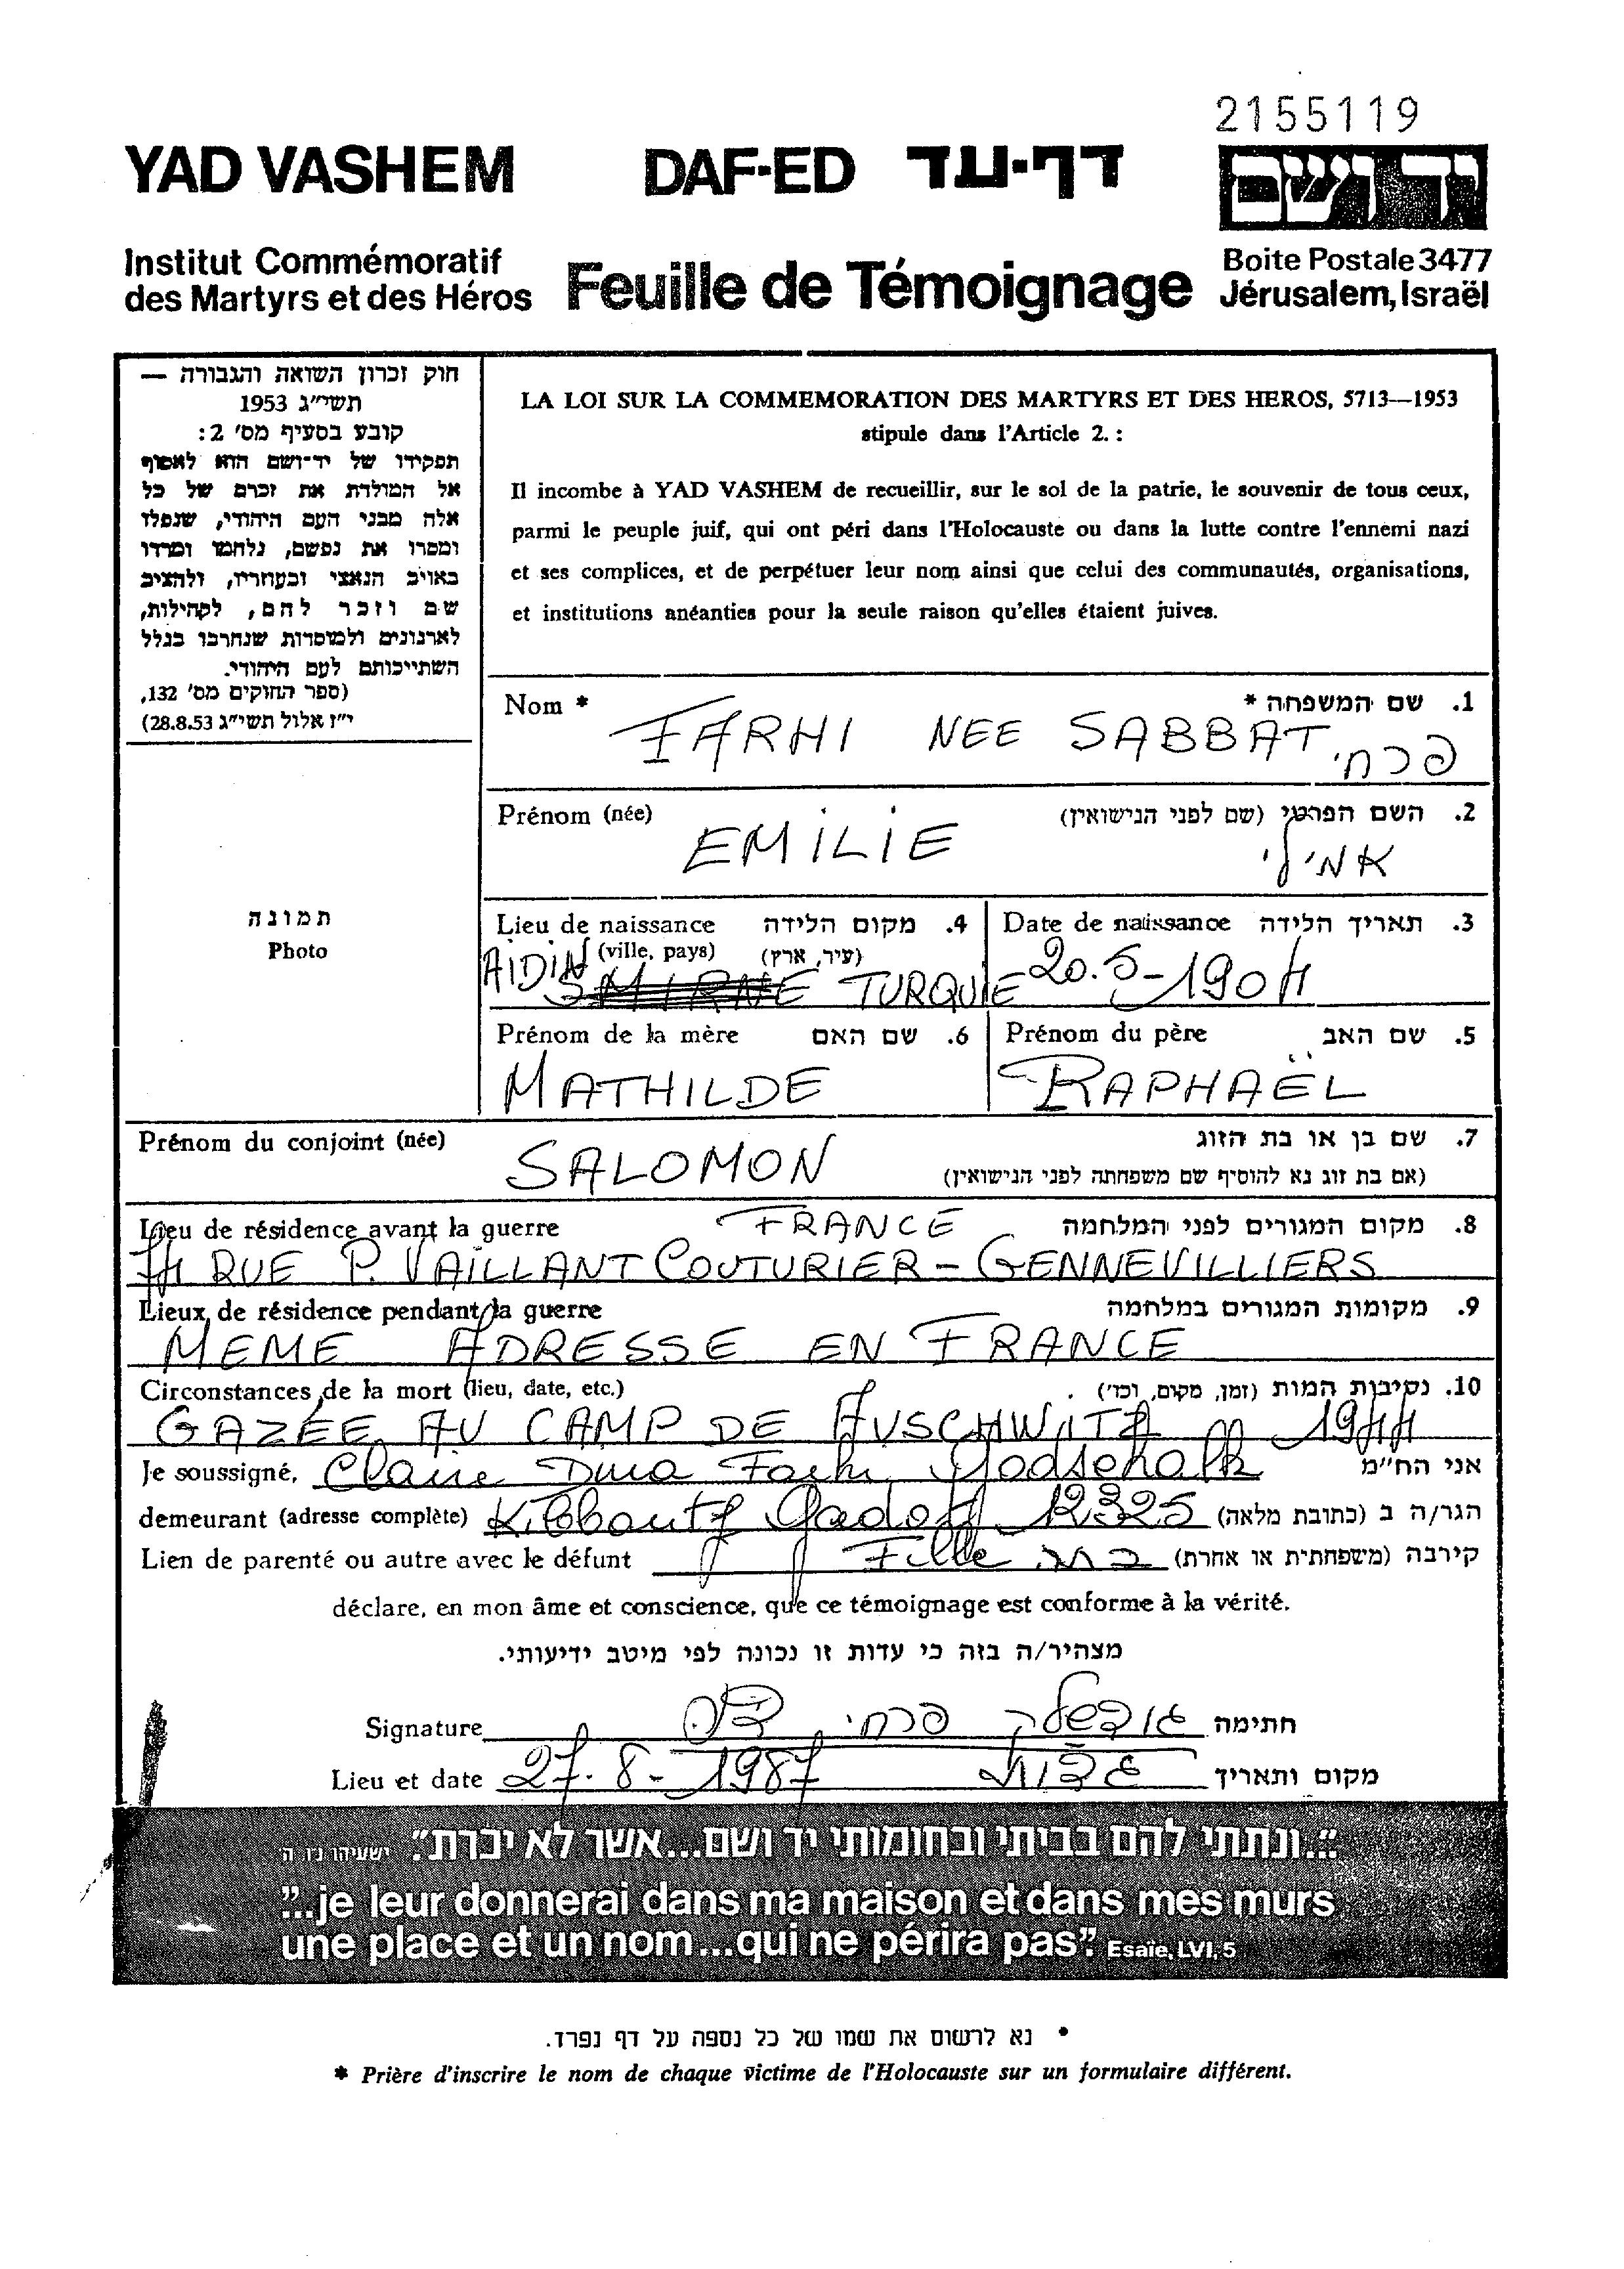 2155119
YAD VASHEM DAF-ED דף-עד
יד ושם
Institut Commémoratif
des Martyrs et des Héros
Feuille de Témoignage
Boite Postale 3477
Jérusalem, Israël
חוק זכרון השואה והגבורה —
תשי״ג 1953
קובע בסעיף מס׳ 2:
תפקידו של יד-ושם הוא לאסוף
אל המולדת את זכרם של כל
אלה מבני העם היהודי, שנפלו
ומסרו את נפשם, נלחמו ומרדו
באויב הנאצי ובעוזריו, ולהציב
שם וזכר להם, לקהילות,
לארגונים ולמוסדות שנחרבו בגלל
השתייכותם לעם היהודי.
(ספר החוקים מס׳ 132,
י״ז אלול תשי״ג 28.8.53)
LA LOI SUR LA COMMEMORATION DES MARTYRS ET DES HEROS, 5713—1953
stipule dans l'Article 2. :
Il incombe à YAD VASHEM de recueillir, sur le sol de la patrie, le souvenir de tous ceux,
parmi le peuple juif, qui ont péri dans l'Holocauste ou dans la lutte contre l'ennemi nazi
et ses complices, et de perpétuer leur nom ainsi que celui des communautés, organisations,
et institutions anéanties pour la seule raison qu'elles étaient juives.
Nom * 1. שם המשפחה *
FARHI NEE SABBAT פרחי
Prénom (née) 2. השם הפרטי (שם לפני הנישואין)
EMILIE אמילי
תמונה
Photo
Lieu de naissance 4. מקום הלידה
(ville, pays) (עיר, ארץ)
AIDIN SMIRNE TURQUIE
Date de naissance 3. תאריך הלידה
20.5-1904
Prénom de la mère 6. שם האם
MATHILDE
Prénom du père 5. שם האב
RAPHAËL
Prénom du conjoint (née) SALOMON 7. שם בן או בת הזוג
(אם בת זוג נא להוסיף שם משפחתה לפני הנישואין)
Lieu de résidence avant la guerre FRANCE 8. מקום המגורים לפני המלחמה
74 RUE P. VAILLANT COUTURIER - GENNEVILLIERS
Lieux de résidence pendant la guerre 9. מקומות המגורים במלחמה
MEME ADRESSE EN FRANCE
Circonstances de la mort (lieu, date, etc.) 10. נסיבות המות (זמן, מקום, וכד׳)
GAZÉE AU CAMP DE AUSCHWITZ 1944
Je soussigné, Claire Dina Farhi Godschalk אני הח״מ
demeurant (adresse complète) Kibboutz Gadot 12325 הגר/ה ב (כתובת מלאה)
Lien de parenté ou autre avec le défunt Fille בת קירבה (משפחתית או אחרת)
déclare, en mon âme et conscience, que ce témoignage est conforme à la vérité.
מצהיר/ה בזה כי עדות זו נכונה לפי מיטב ידיעותי.
Signature גודשלק פרחי חתימה
Lieu et date 27.8-1987 גדות מקום ותאריך
"...ונתתי להם בביתי ובחומותי יד ושם...אשר לא יכרת". ישעיהו נ״ו, ה
"...je leur donnerai dans ma maison et dans mes murs
une place et un nom...qui ne périra pas". Esaïe, LVI, 5
• נא לרשום את שמו של כל נספה על דף נפרד.
* Prière d'inscrire le nom de chaque victime de l'Holocauste sur un formulaire différent.